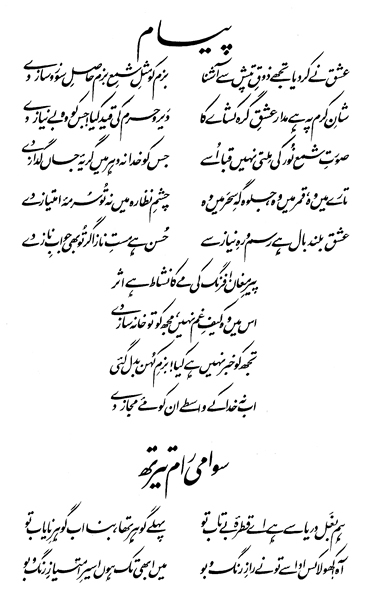 پیام
عشق نے کر دیا تجھے ذوقِ تپش سے آشنا بزم کو مثلِ شمعِ بزم حاصلِ سوز و ساز دے
شانِ کرم پہ ہے مدار عشقِ گرہ کشاے کا دیر و حرم کی قید کیا جس کو وہ بے نیاز دے
صورتِ شمع نور کی ملتی نہیں قبا اُسے جس کو خدا نہ دہر میں گریۂ جاں گداز دے
تارے میں وہ قمر میں وہ جلوہ گہِ سحر میں وہ چشمِ نظارہ میں نہ تو سرمۂ امتیاز دے
عشق بلند بال ہے رسم و رہِ نیاز سے حسن ہے مستِ ناز اگر تو بھی جوابِ ناز دے
پیرِ مغاں! فرنگ کی مے کا نشاط ہے اثر
اس میں وہ کیفِ غم نہیں، مجھ کو تو خانہ ساز دے
تجھ کو خبر نہیں ہے کیا! بزمِ کہن بدل گئی
اب نہ خدا کے واسطے ان کو مئے مجاز دے
سوامی رام تیرتھ
ہم بغل دریا سے ہے اے قطرۂ بے تاب تو پہلے گوہر تھا بنا اب گوہرِ نایاب تو
آہ کھولا کس ادا سے تو نے رازِ رنگ و بو میں ابھی تک ہوں اسیرِ امتیازِ رنگ و بو